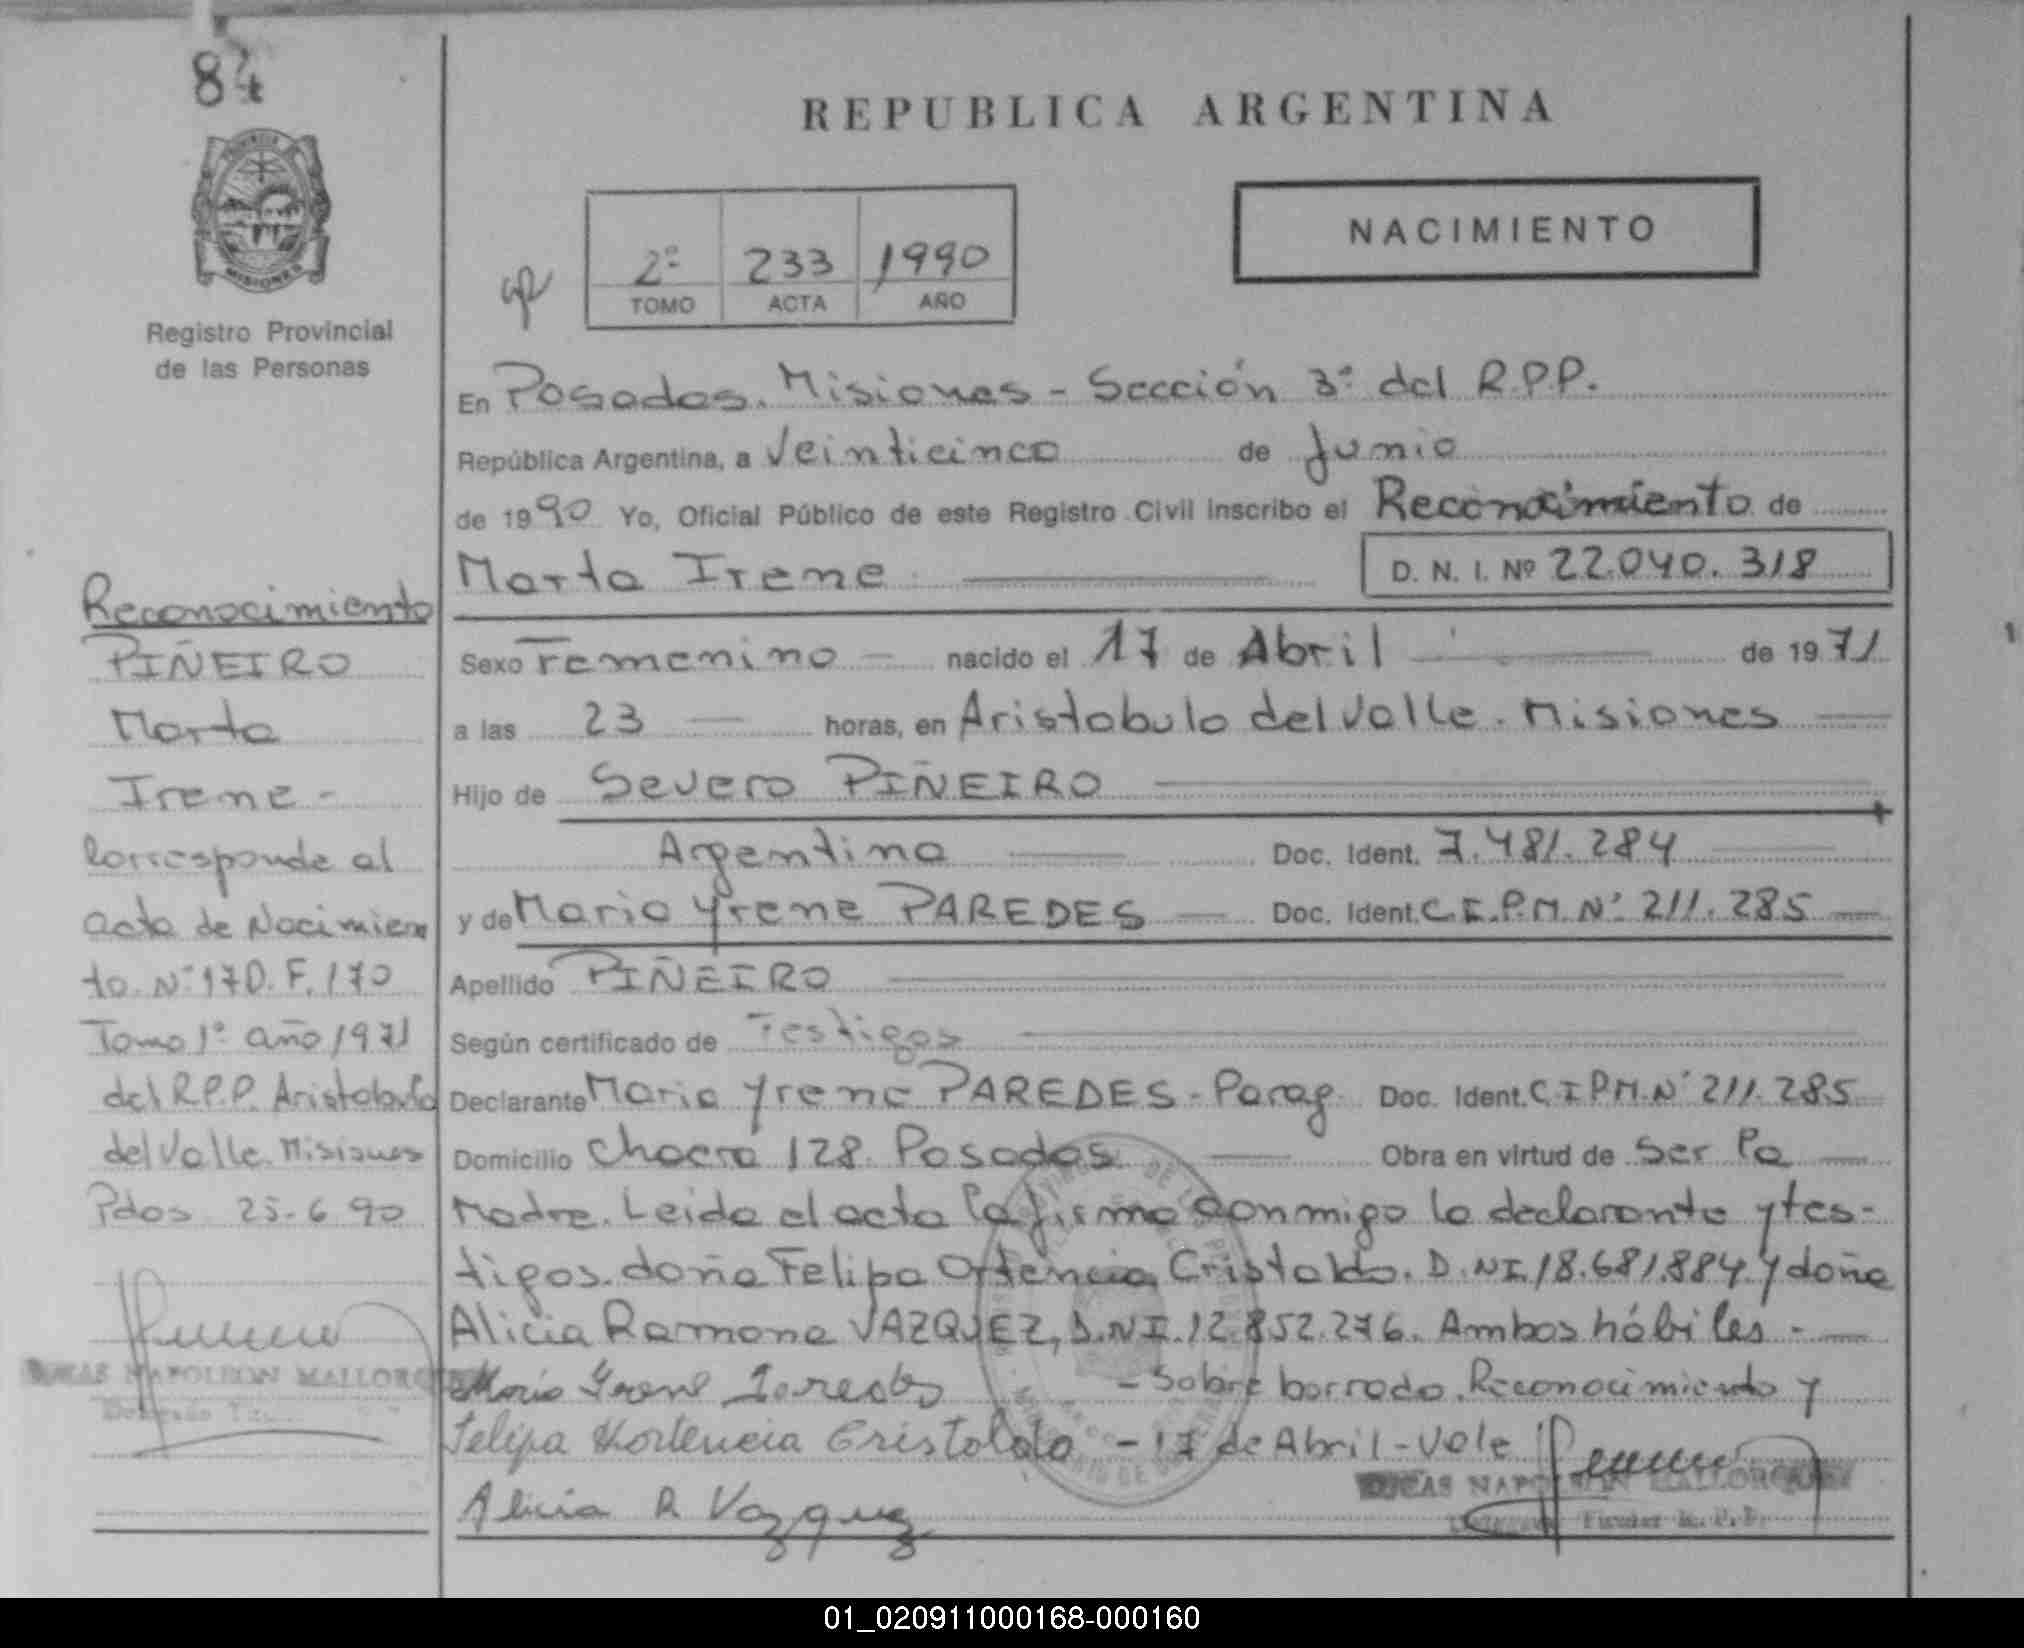 84
REPUBLICA ARGENTINA
NACIMIENTO
2º 233 1990
TOMO ACTA AÑO
PROVINCIA
MISIONES
Registro Provincial
de las Personas
En Posadas. Misiones - Sección 3ª del R.P.P.
República Argentina, a Veinticinco de Junio
de 1990 Yo, Oficial Público de este Registro Civil inscribo el Reconocimiento de
Marta Irene D. N. I. Nº 22.040.318
Sexo Femenino - nacido el 17 de Abril de 1971
a las 23 horas, en Aristobulo del Valle. Misiones
Hijo de Severo PIÑEIRO
Argentino Doc. Ident. 7.481.284
y de Maria Yrene PAREDES Doc. Ident. C.I.P.M. Nº 211.285
Apellido PIÑEIRO
Según certificado de Testigos
Declarante Maria Yrene PAREDES - Parag. Doc. Ident. C.I.P.M. Nº 211.285
Domicilio Chacra 128. Posadas Obra en virtud de Ser la
Madre. Leida el acta la firma conmigo la declarante y tes-
tigos. doña Felipa Ortencia Cristaldo. D.N.I. 18.681.884 y doña
Alicia Ramona VAZQUEZ, D.N.I. 12.852.276. Ambos hábiles -
Maria Yrene Paredes - Sobre borrado. Reconocimiento y
Felipa Hortencia Cristaldo - 17 de Abril - Vale
LUCAS NAPOLEON MALLORQUIN
Alicia R Vazquez
Reconocimiento
PIÑEIRO
Marta
Irene -
Corresponde al
acta de Nacimien
to. Nº 170. F. 170
Tomo 1º año 1971
del R.P.P. Aristobulo
del Valle. Misiones
Pdas 25-6-90
LUCAS NAPOLEON MALLORQUIN
01_020911000168-000160